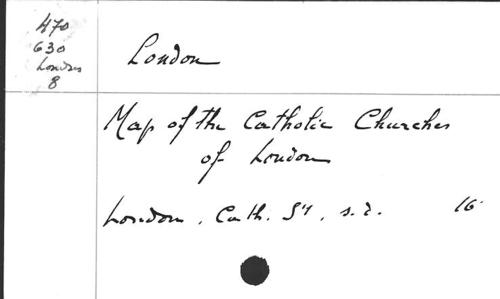 470
630
London
8
London
Map of the Catholic Churches
of London
London, Cath. Sy, s.d. 16